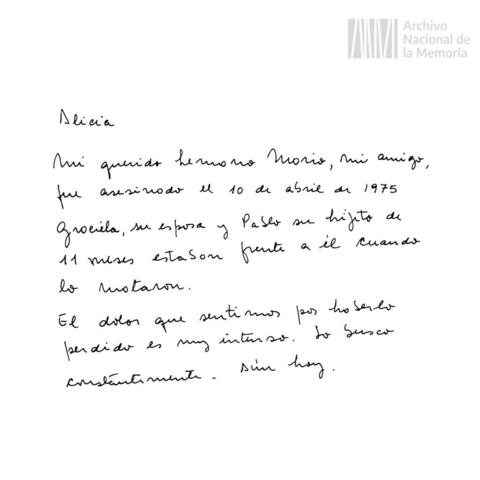 Archivo
Nacional de
la Memoria
Alicia
Mi querido hermano Mario, mi amigo,
fue asesinado el 10 de abril de 1975
Graciela, su esposa y Pablo su hijito de
11 meses estaban frente a él cuando
lo mataron.
El dolor que sentimos por haberlo
perdido es muy intenso. Lo busco
constantemente. Aún hoy.